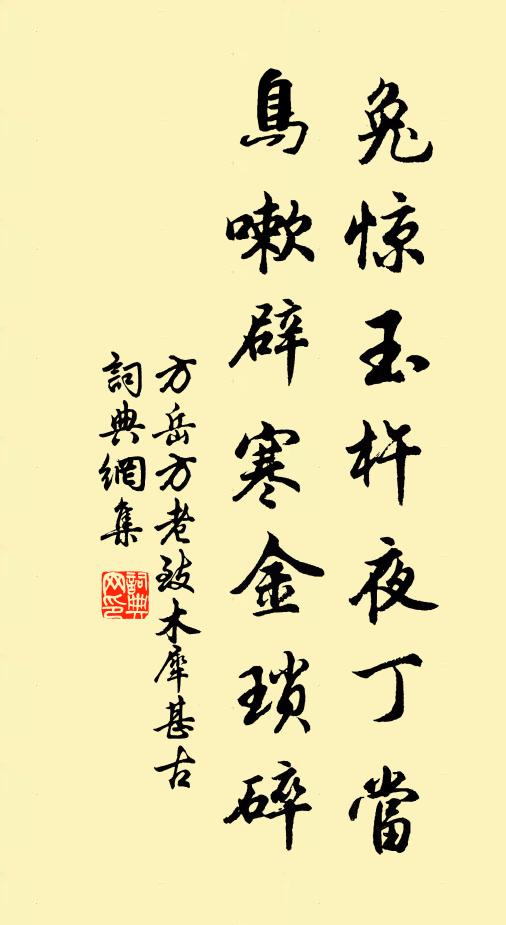 兔惊玉杵夜丁當
鳥嗽辟寒金瑣碎
方岳方老致木犀甚古
詞典網集
詞典网印